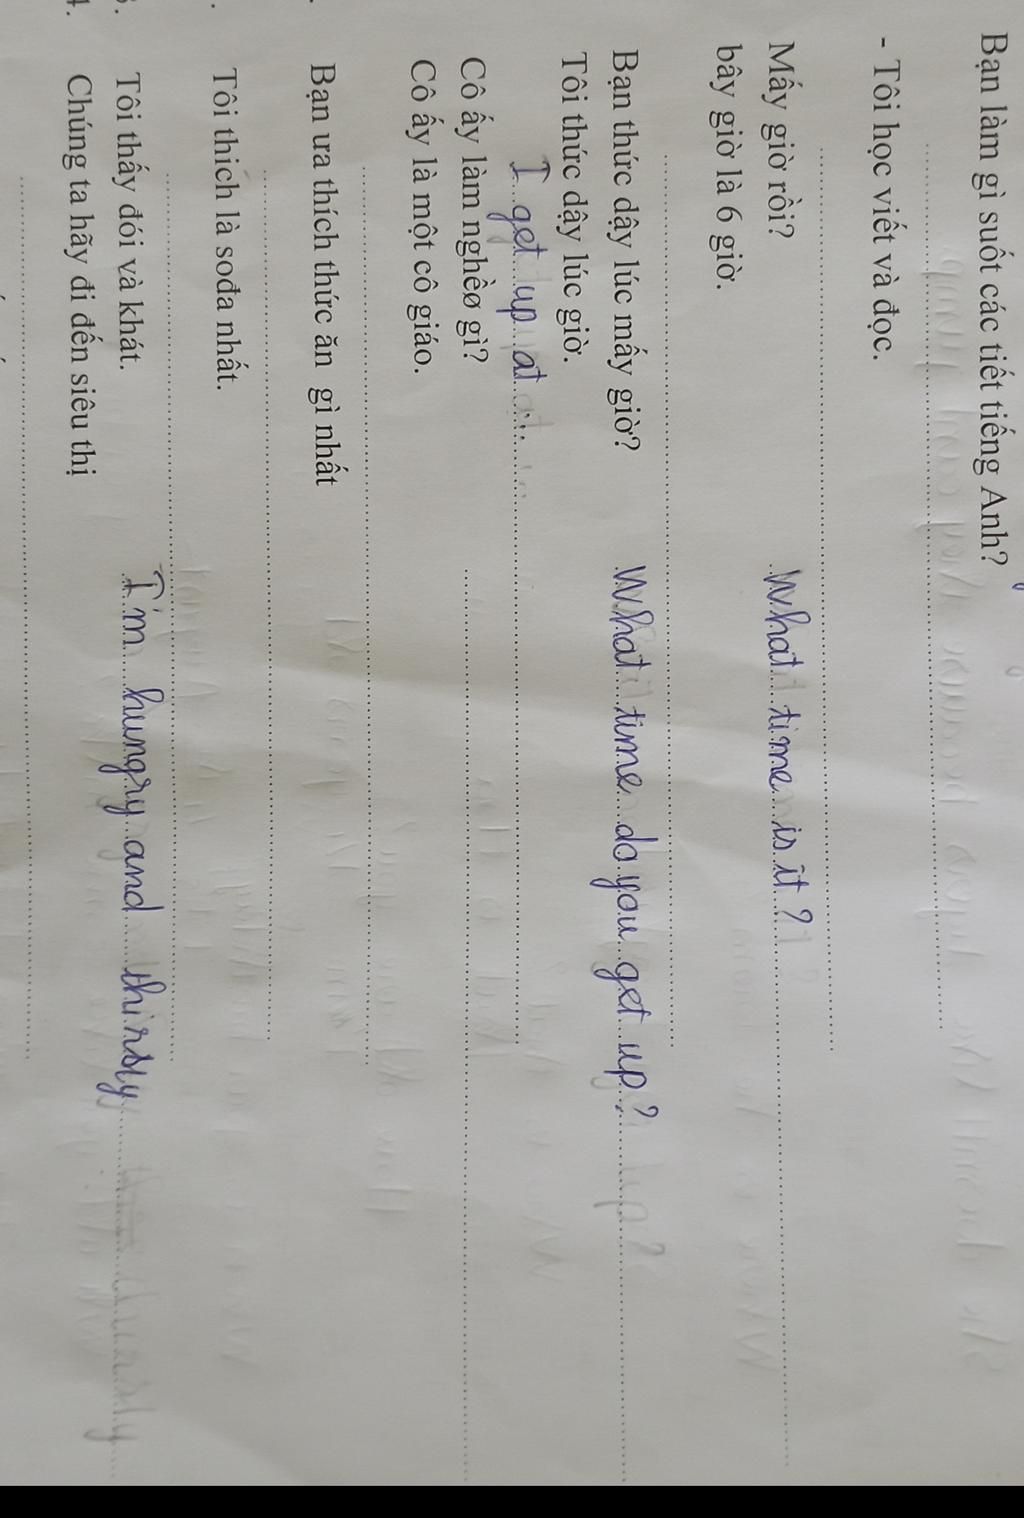 Bạn làm gì suốt các tiết tiếng Anh?
- Tôi học viết và đọc.
Mấy giờ rồi? What time is it?
bây giờ là 6 giờ.
Bạn thức dậy lúc mấy giờ? What time do you get up?
Tôi thức dậy lúc giờ.
I get up at ...
Cô ấy làm nghềø gì?
Cô ấy là một cô giáo.
Bạn ưa thích thức ăn gì nhất
Tôi thich là sođa nhất.
Tôi thấy đói và khát. I'm hungry and thirsly
4. Chúng ta hãy đi đến siêu thị